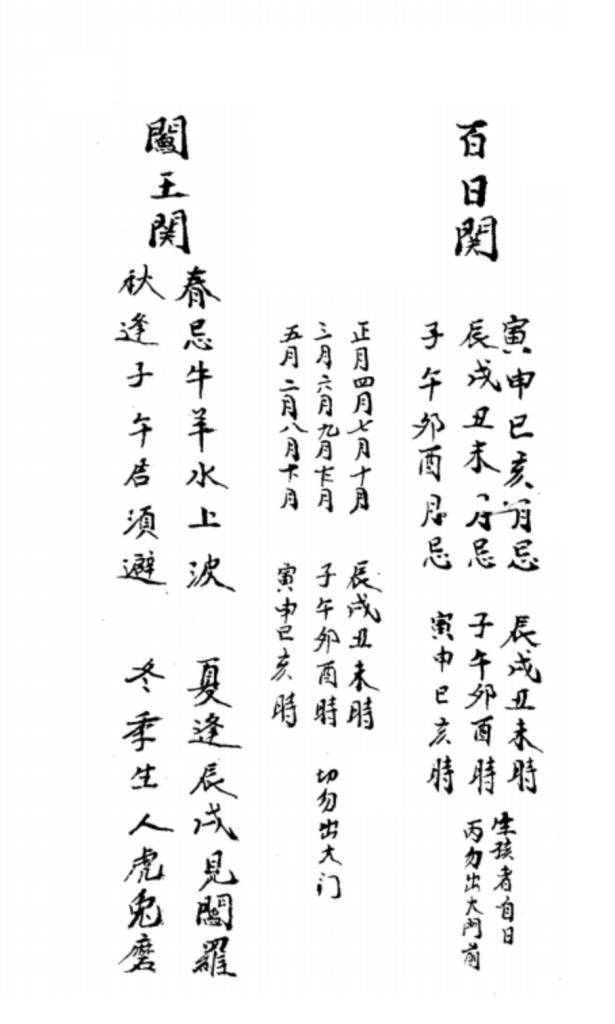 百日関
寅申巳亥月忌 辰戌丑未時
辰戌丑未月忌 子午卯酉時
子午卯酉月忌 寅申巳亥時
生孩者百日
丙勿出大門前
正月四月七月十月 辰戌丑未時
三月六月九月十二月 子午卯酉時
五月二月八月十一月 寅申巳亥時
切勿出大门
閻王関
春忌牛羊水上波 夏逢辰戌見閻羅
秋逢子午君須避 冬季生人虎兎磨